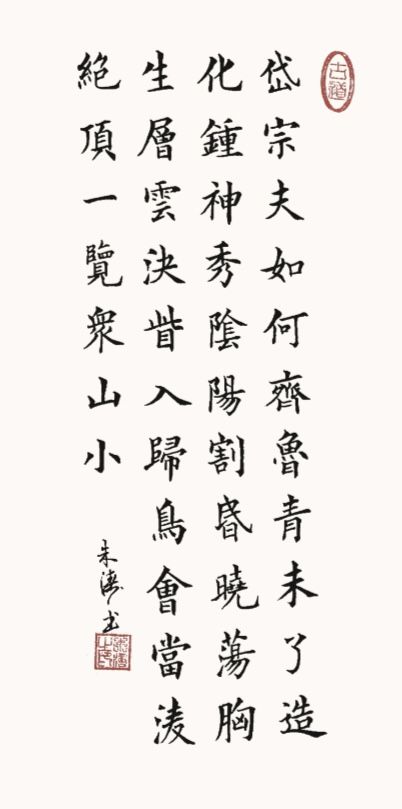 古道
岱宗夫如何齊魯青未了造
化鍾神秀陰陽割昏曉蕩胸
生層雲決眥入歸鳥會當淩
絕頂一覽衆山小
朱濤书